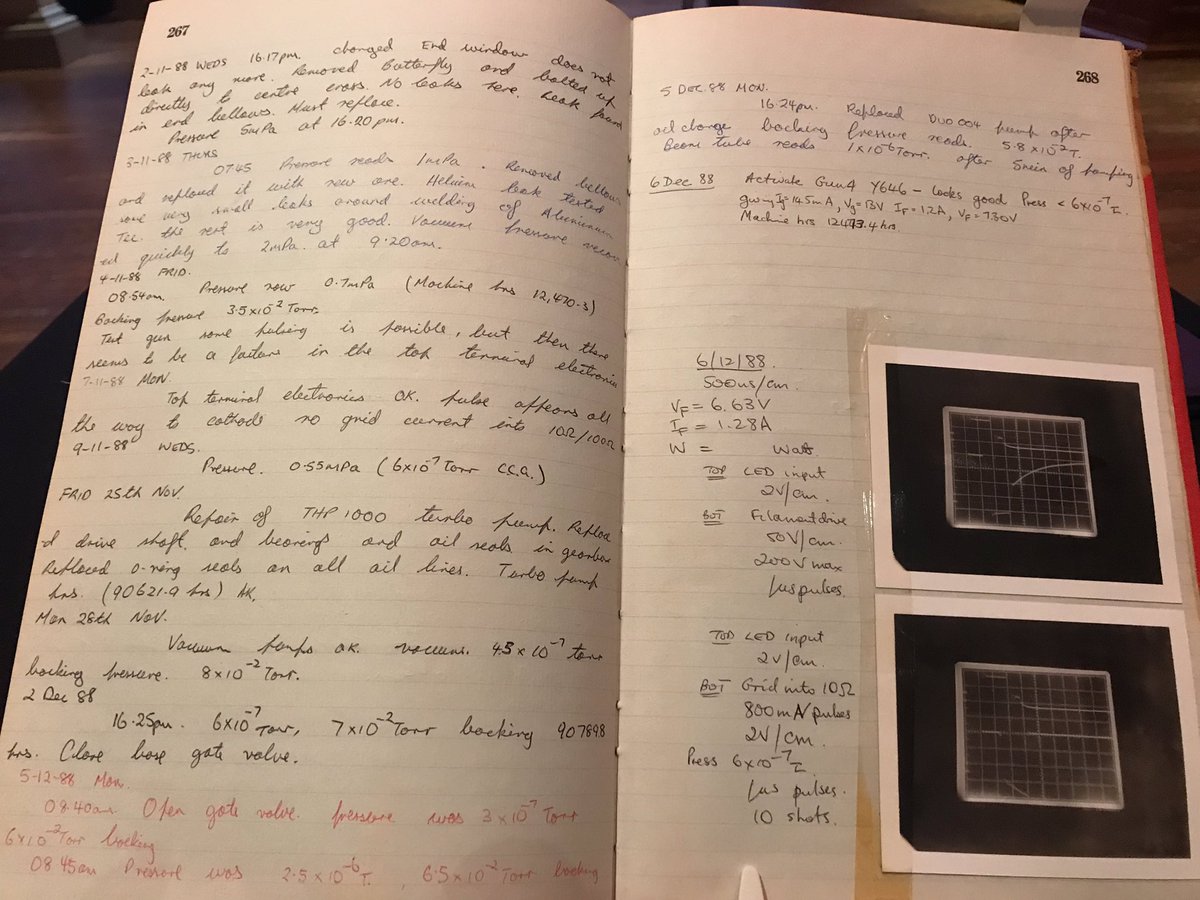 267
2-11-88 WEDS 16.17pm. changed End window does not
leak any more. Removed Butterfly and bolted up
directly to centre cross. No leaks here. Leak found
in end bellows. Must replace.
Pressure 5mPa at 16.20 pm.
3-11-88 THURS
0745 Pressure reads 1mPa. Removed bellows
and replaced it with new one. Helium leak tested
some very small leaks around welding of Aluminium
Tee. the rest is very good. Vacuum pressure recover
ed quickly to 2mPa. at 9.20am.
4-11-88 FRID.
08.54am. Pressure now 0.7mPa (Machine hrs 12,470.3)
Backing pressure 3.5x10⁻² Torr.
Test gun some pulsing is possible, but then there
seems to be a failure in the top terminal electronics
7-11-88 MON.
Top terminal electronics OK. pulse appears all
the way to cathode no grid current into 10Ω/100Ω
9-11-88 WEDS.
Pressure. 0.55mPa (6x10⁻⁷ Torr C.C.G.)
FRID 25th NOV.
Repair of THP 1000 turbo pump. Replace
d drive shaft, and bearings and oil seals in gearbox
Replaced o-ring seals on all oil lines. Turbo pump
hrs. (90621.9 hrs) AK.
Mon 28th Nov.
Vacuum pumps OK. vacuum. 4.5x10⁻⁷ torr
backing pressure. 8x10⁻² Torr.
2 Dec 88
16.25pm. 6x10⁻⁷ Torr, 7x10⁻² Torr backing 907898
hrs. Close base gate valve.
5-12-88 Mon.
08.40am Open gate valve. pressure was 3x10⁻⁷ Torr
6x10⁻² Torr backing
08.45am Pressure was 2.5x10⁻⁶ T., 6.5x10⁻² Torr backing
268
5 DEC 88 MON.
16.24pm. Replaced DUO 004 pump after
oil change backing pressure reads. 5.8x10⁻² T.
Beam tube reads 1x10⁻⁶ Torr. after 5min of pumping
6 Dec 88 Activate Gun 4 Y646 - looks good Press < 6x10⁻⁷ T.
giving Ig=145mA, Vg=13V IF=1.2A, VF=7.30V
Machine hrs 12473.4 hrs.
6/12/88.
500ns/cm.
VF = 6.63V
IF = 1.28A
W = Watts.
TOP LED input
2V/cm.
BOT Filament drive
50V/cm.
200V max
1us pulses.
TOP LED input
2V/cm.
BOT Grid into 10Ω
800mA pulses
2V/cm.
Press 6x10⁻⁷ T.
1us pulses.
10 shots.